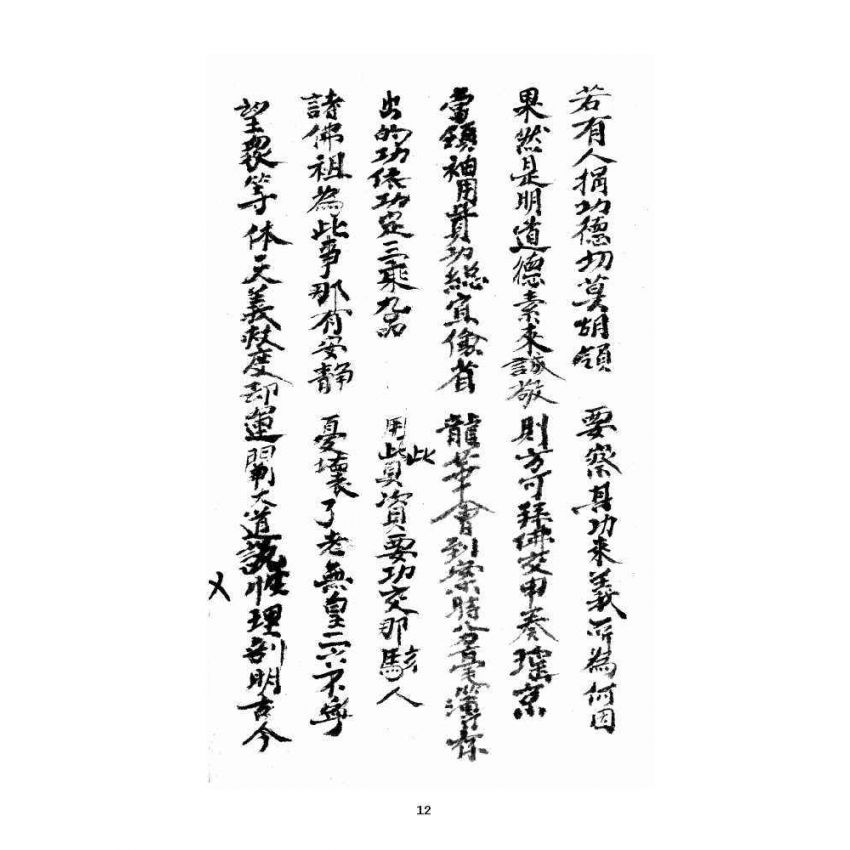 若有人捐功德切莫胡領 要察其功來義所為何因
果然是明道德素來誠敬 則方可拜佛交申奏瑤京
當領袖用費功總宜儉省 龍華會到察時分毫簿标
出的功依功定三乘九品 用此真資要功交那駭人
諸佛祖為此事那有安靜 憂壞了老無皇二六不寧
望衆等休天義赦度 却運開大道説性理剖明古今
12